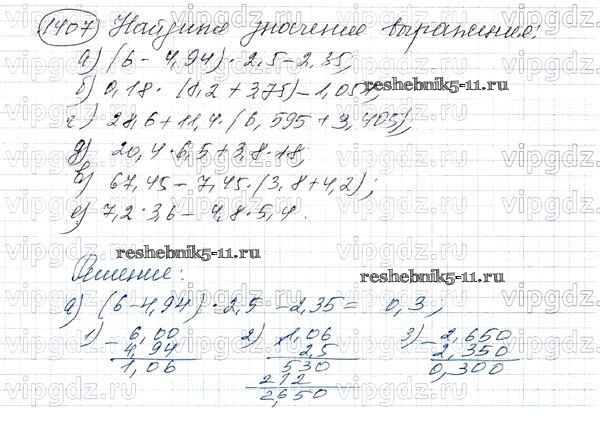 1407 Найдите значение выражения:
а) (6 - 4,94) · 2,5 - 2,35;
б) 0,18 · (8,2 + 3,75) - 1,051;
reshebnik5-11.ru
г) 28,6 + 11,4 · (6,595 + 3,405);
д) 20,4 · 6,5 + 3,8 · 18;
в) 67,45 - 7,45 · (3,8 + 4,2);
е) 7,2 · 3,6 - 4,8 · 5,4.
reshebnik5-11.ru
Решение:
reshebnik5-11.ru
а) (6 - 4,94) · 2,5 - 2,35 = 0,3;
1) - 6,00 2) × 1,06 3) - 2,650
4,94 2,5 2,350
1,06 530 0,300
212
2,650